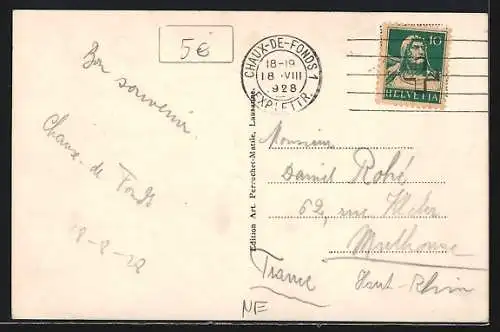 5€
CHAUX-DE-FONDS 1
18-19
18.VIII
1928
EXP. LETTR.
10
HELVETIA
Bon souvenir
Chaux-de Fonds
18-8-28
Edition Art. Perrochet-Matile, Lausanne
Monsieur
Daniel Rohé
62, rue Kléber
Mulhouse
France
Haut-Rhin
NE